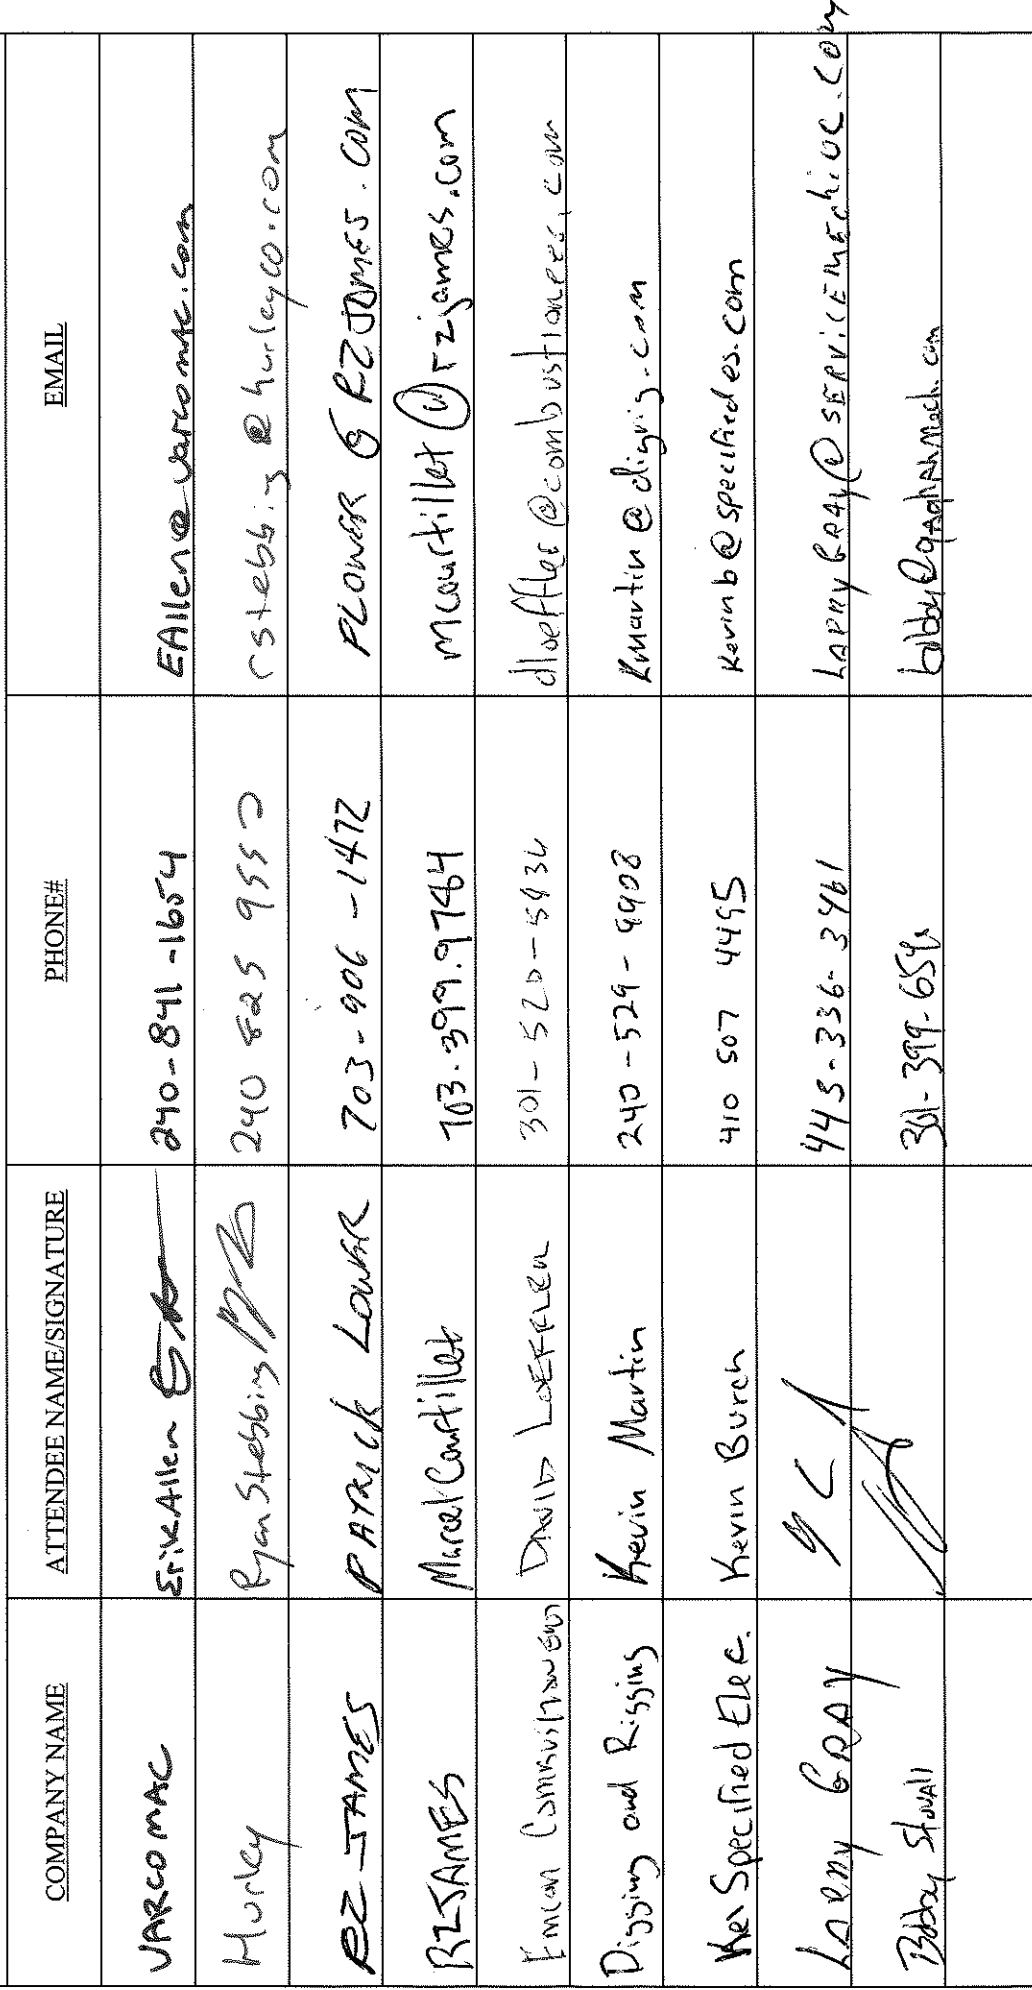 COMPANY NAME ATTENDEE NAME/SIGNATURE PHONE# EMAIL
VARCOMAC Erik Allen 240-841-1654 EAllen@varcomac.com
Hurley Ryan Stebbing 240 825 955 rstebbing@hurleyco.com
RZ JAMES PATRICK LOWER 703-906-1472 PLOWER@RZJAMES.COM
RZJAMES Marcel Courtillet 703.399.9764 mcourtillet@rzjames.com
DAVID LOEFFLER 301-520-5836 dloeffler@combustioneer.com
Digging and Rigging Kevin Martin 240-529-9908 kmartin@digrig.com
Specified Elec. Kevin Burch 410 507 4495 Kevinb@specifiedes.com
LARRY GRAY 443-336-3461 LARRYGRAY@SERVICEmech.com
Bobby Stovall 301-399-654